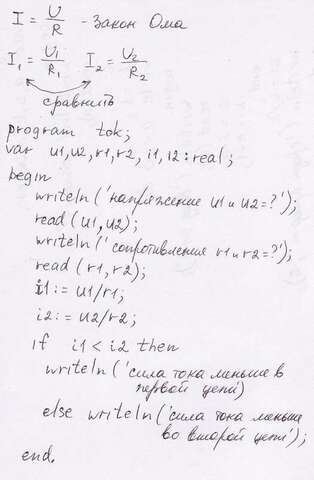 I = U/R - Закон Ома
I1 = U1/R1 I2 = U2/R2
сравнить
program tok;
var u1,u2,r1,r2,i1,i2:real;
begin
writeln('напряжение u1 и u2=?');
read(u1,u2);
writeln('сопротивления r1 и r2=?');
read(r1,r2);
i1:=u1/r1;
i2:=u2/r2;
if i1<i2 then
writeln('сила тока меньше в
первой цепи)
else writeln('сила тока меньше
во второй цепи');
end.